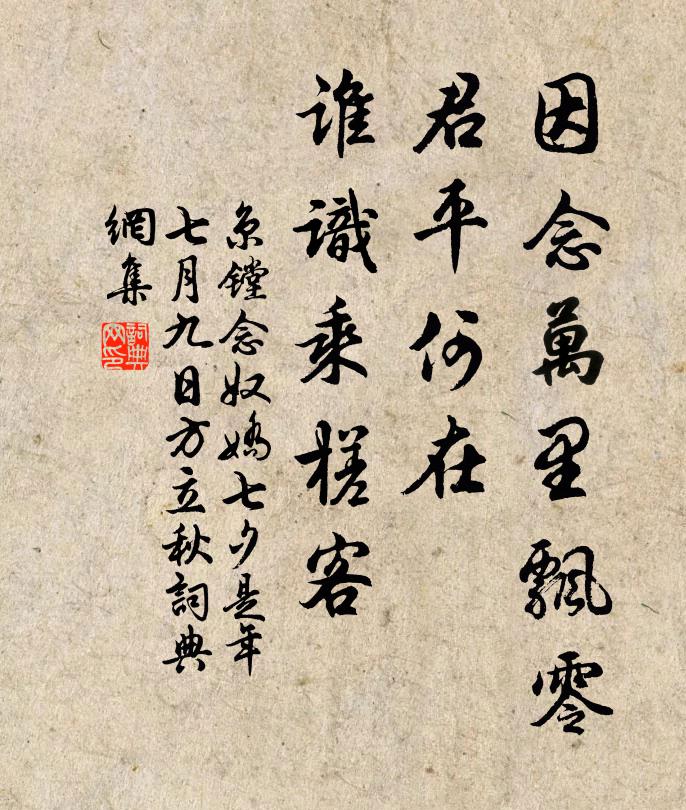 因念萬里飄零
君平何在
誰識乘槎客
京鏜念奴嬌七夕是年
七月九日方立秋詞典
網集
詞典
网印